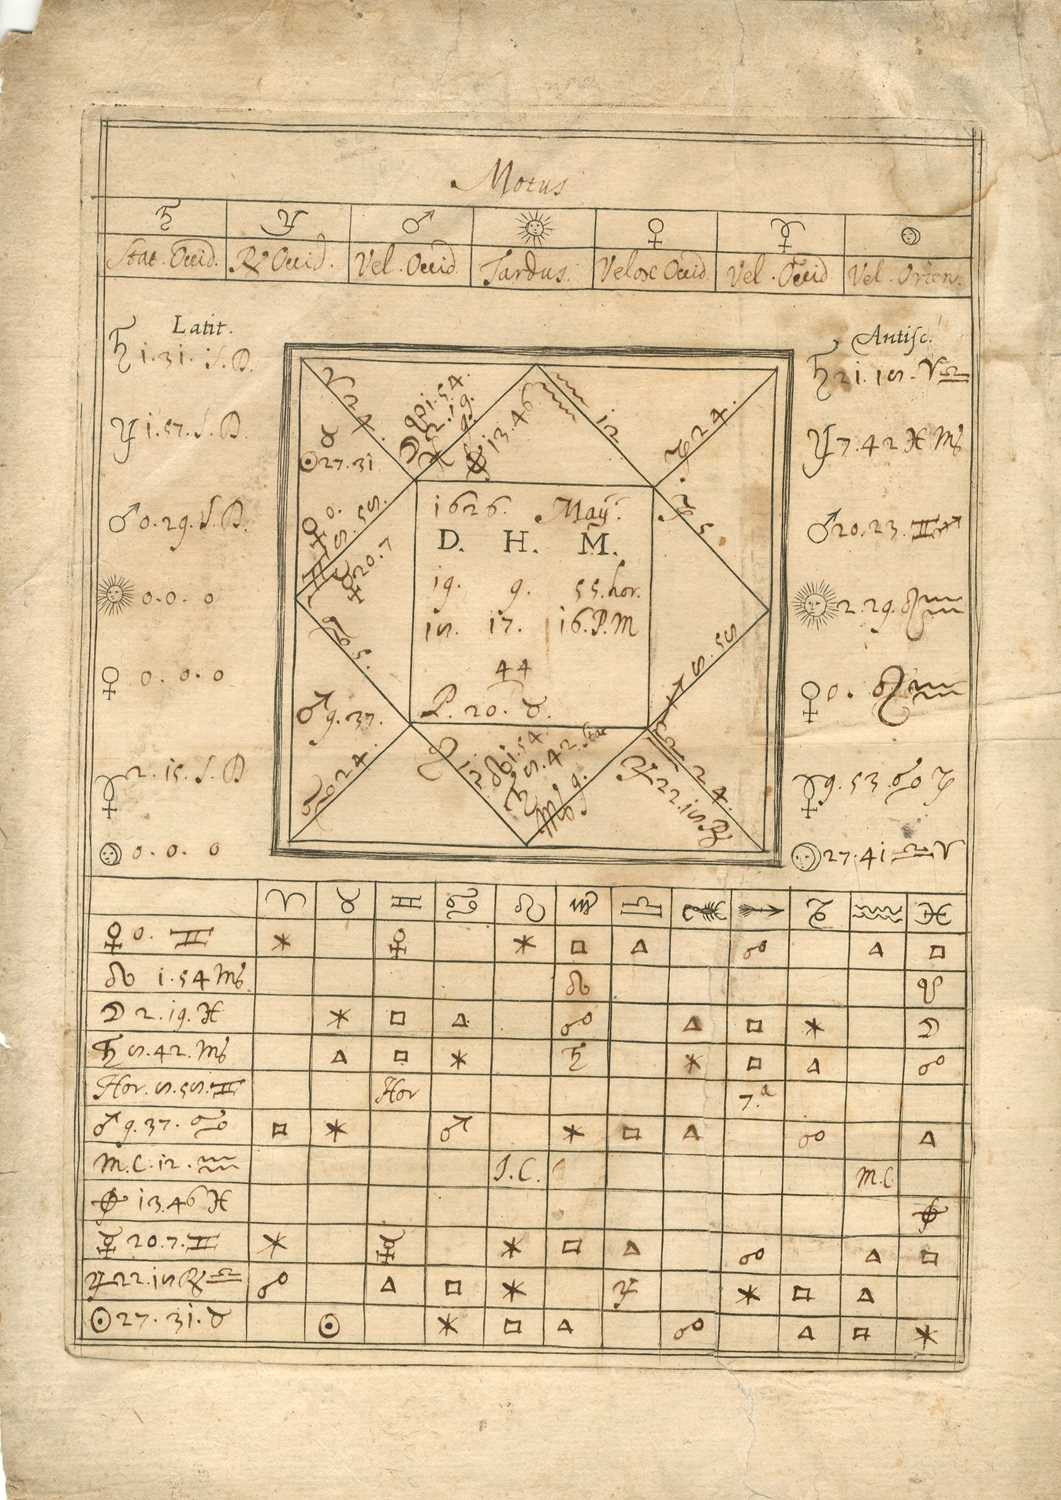 Motus
♄ ♃ ♂ ☉ ♀ ☿ ☽
Stat. Occid. ℞ Occid. Vel. Occid Tardus. Velox Occid. Vel. Occid Vel. Orien.
Latit.
♄ 1.31. S.D.
♃ 1.57. S.D.
♂ 0.29. S.D.
☉ 0.0. 0
♀ 0.0.0
☿ 2.15. S.D
☽ 0.0. 0
Antisc.
♄ 21.18. ♈♎
♃ 7.42 ♓ ♍
♂ 20.23. ♊♐
☉ 2.29. ♌♒
♀ 0. ♌♒
☿ 9.53 ♋ ♑
☽ 27.41 ♎♈
♈ 24.
♉
☉ 27.31
☋ 1.54.
☽ 2.19.
♓ 9.
⊕ 13.46
♒ 12
♑ 24.
♑ 5.
♀ 0.
♊ 5.55.
☿ 20.7
♋ 5.
♂ 9.37.
♋ 24.
♌ 12
☊ 1.54.
♄ 5.42. Sta
♍ 9.
♎ 24.
♃ 22.18 ℞
♐ 5.55
1626. May.
D. H. M.
19. 9. 55. hor.
18. 17. 16. P.M
44
P. 20. ♉.
♈ ♉ ♊ ♋ ♌ ♍ ♎ ♏ ♐ ♑ ♒ ♓
♀ 0. ♊ ⚹ ♀ ⚹ □ △ ☍ △ □
☊ 1.54 ♍ ☊ ☋
☽ 2.19. ♓ ⚹ □ △ ☍ △ □ ⚹ ☽
♄ 5.42. ♍ △ □ ⚹ ♄ ⚹ □ △ ☍
Hor. 5.55. ♊ Hor 7.a
♂ 9.37. ♋ □ ⚹ ♂ ⚹ □ △ ☍ △
M.C. 12. ♒ I.C. M.C
⊕ 13.46 ♓ ⊕
☿ 20.7. ♊ ⚹ ☿ ⚹ □ △ ☍ △ □
♃ 22.18 ℞ ♎ ☍ △ □ ⚹ ♃ ⚹ □ △
☉ 27.31. ♉ ☉ ⚹ □ △ ☍ △ □ ⚹